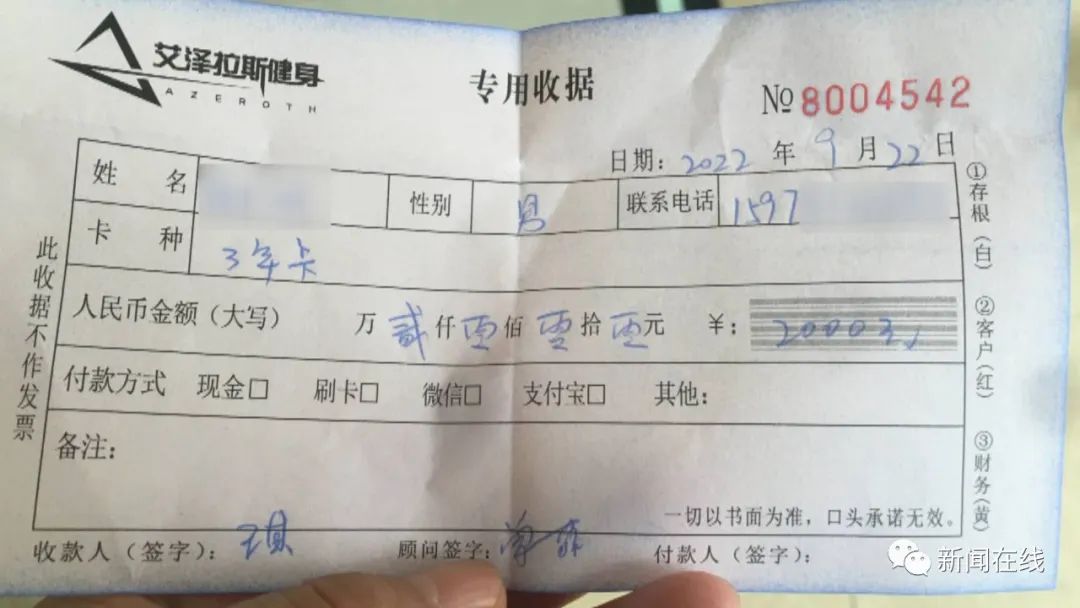 艾泽拉斯健身
AZEROTH
专用收据
№ 8004542
日期: 2022 年 9 月 22 日
姓名 性别 男 联系电话 1597
卡种 3年卡
人民币金额(大写) 万 贰 仟 零 佰 零 拾 零 元 ¥: 2000元
付款方式 现金□ 刷卡□ 微信□ 支付宝□ 其他:
备注:
一切以书面为准,口头承诺无效。
收款人(签字): 琪 顾问签字: 付款人(签字):
此收据不作发票
①存根(白) ②客户(红) ③财务(黄)
新闻在线